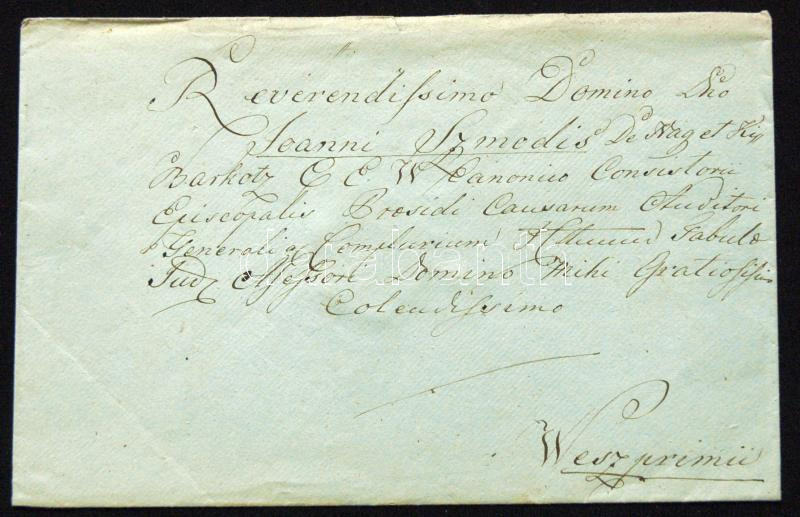 Reverendissimo Domino Dno
Joanni Szmodis De Nag et Kis
Barkotz E E W Canonico Consistorii
Episcopalis Praesidi Causarum Auditori
Generali Complurium Tabulae
Jud Assessori Domino Mihi Gratiosissi
Colendissimo
Weszprimii